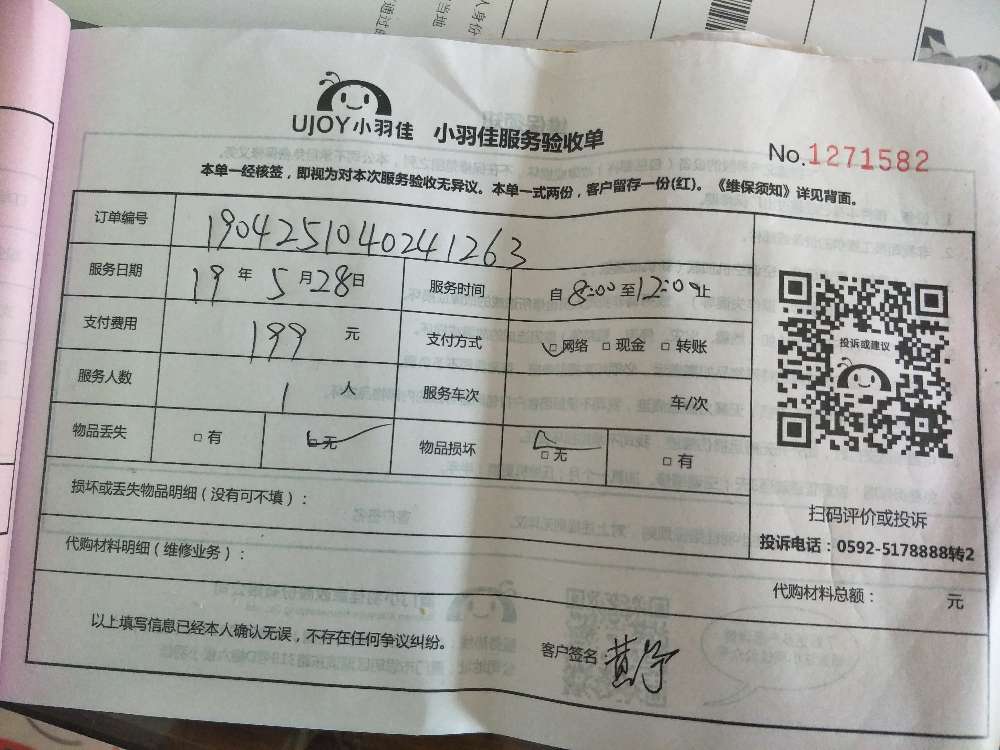 人身份
当地
UJOY小羽佳 小羽佳服务验收单
No.1271582
本单一经核签，即视为对本次服务验收无异议。本单一式两份，客户留存一份(红)。《维保须知》详见背面。
订单编号 1904251040241263
服务日期 19 年 5 月 28 日 服务时间 自 8:00 至 12:00 止
支付费用 199 元 支付方式 □网络 □现金 □转账
服务人数 1 人 服务车次 车/次
物品丢失 □有 □无 物品损坏 □无 □有
投诉或建议
扫码评价或投诉
投诉电话：0592-5178888转2
损坏或丢失物品明细（没有可不填）：
代购材料明细（维修业务）：
代购材料总额： 元
以上填写信息已经本人确认无误，不存在任何争议纠纷。
客户签名：黄